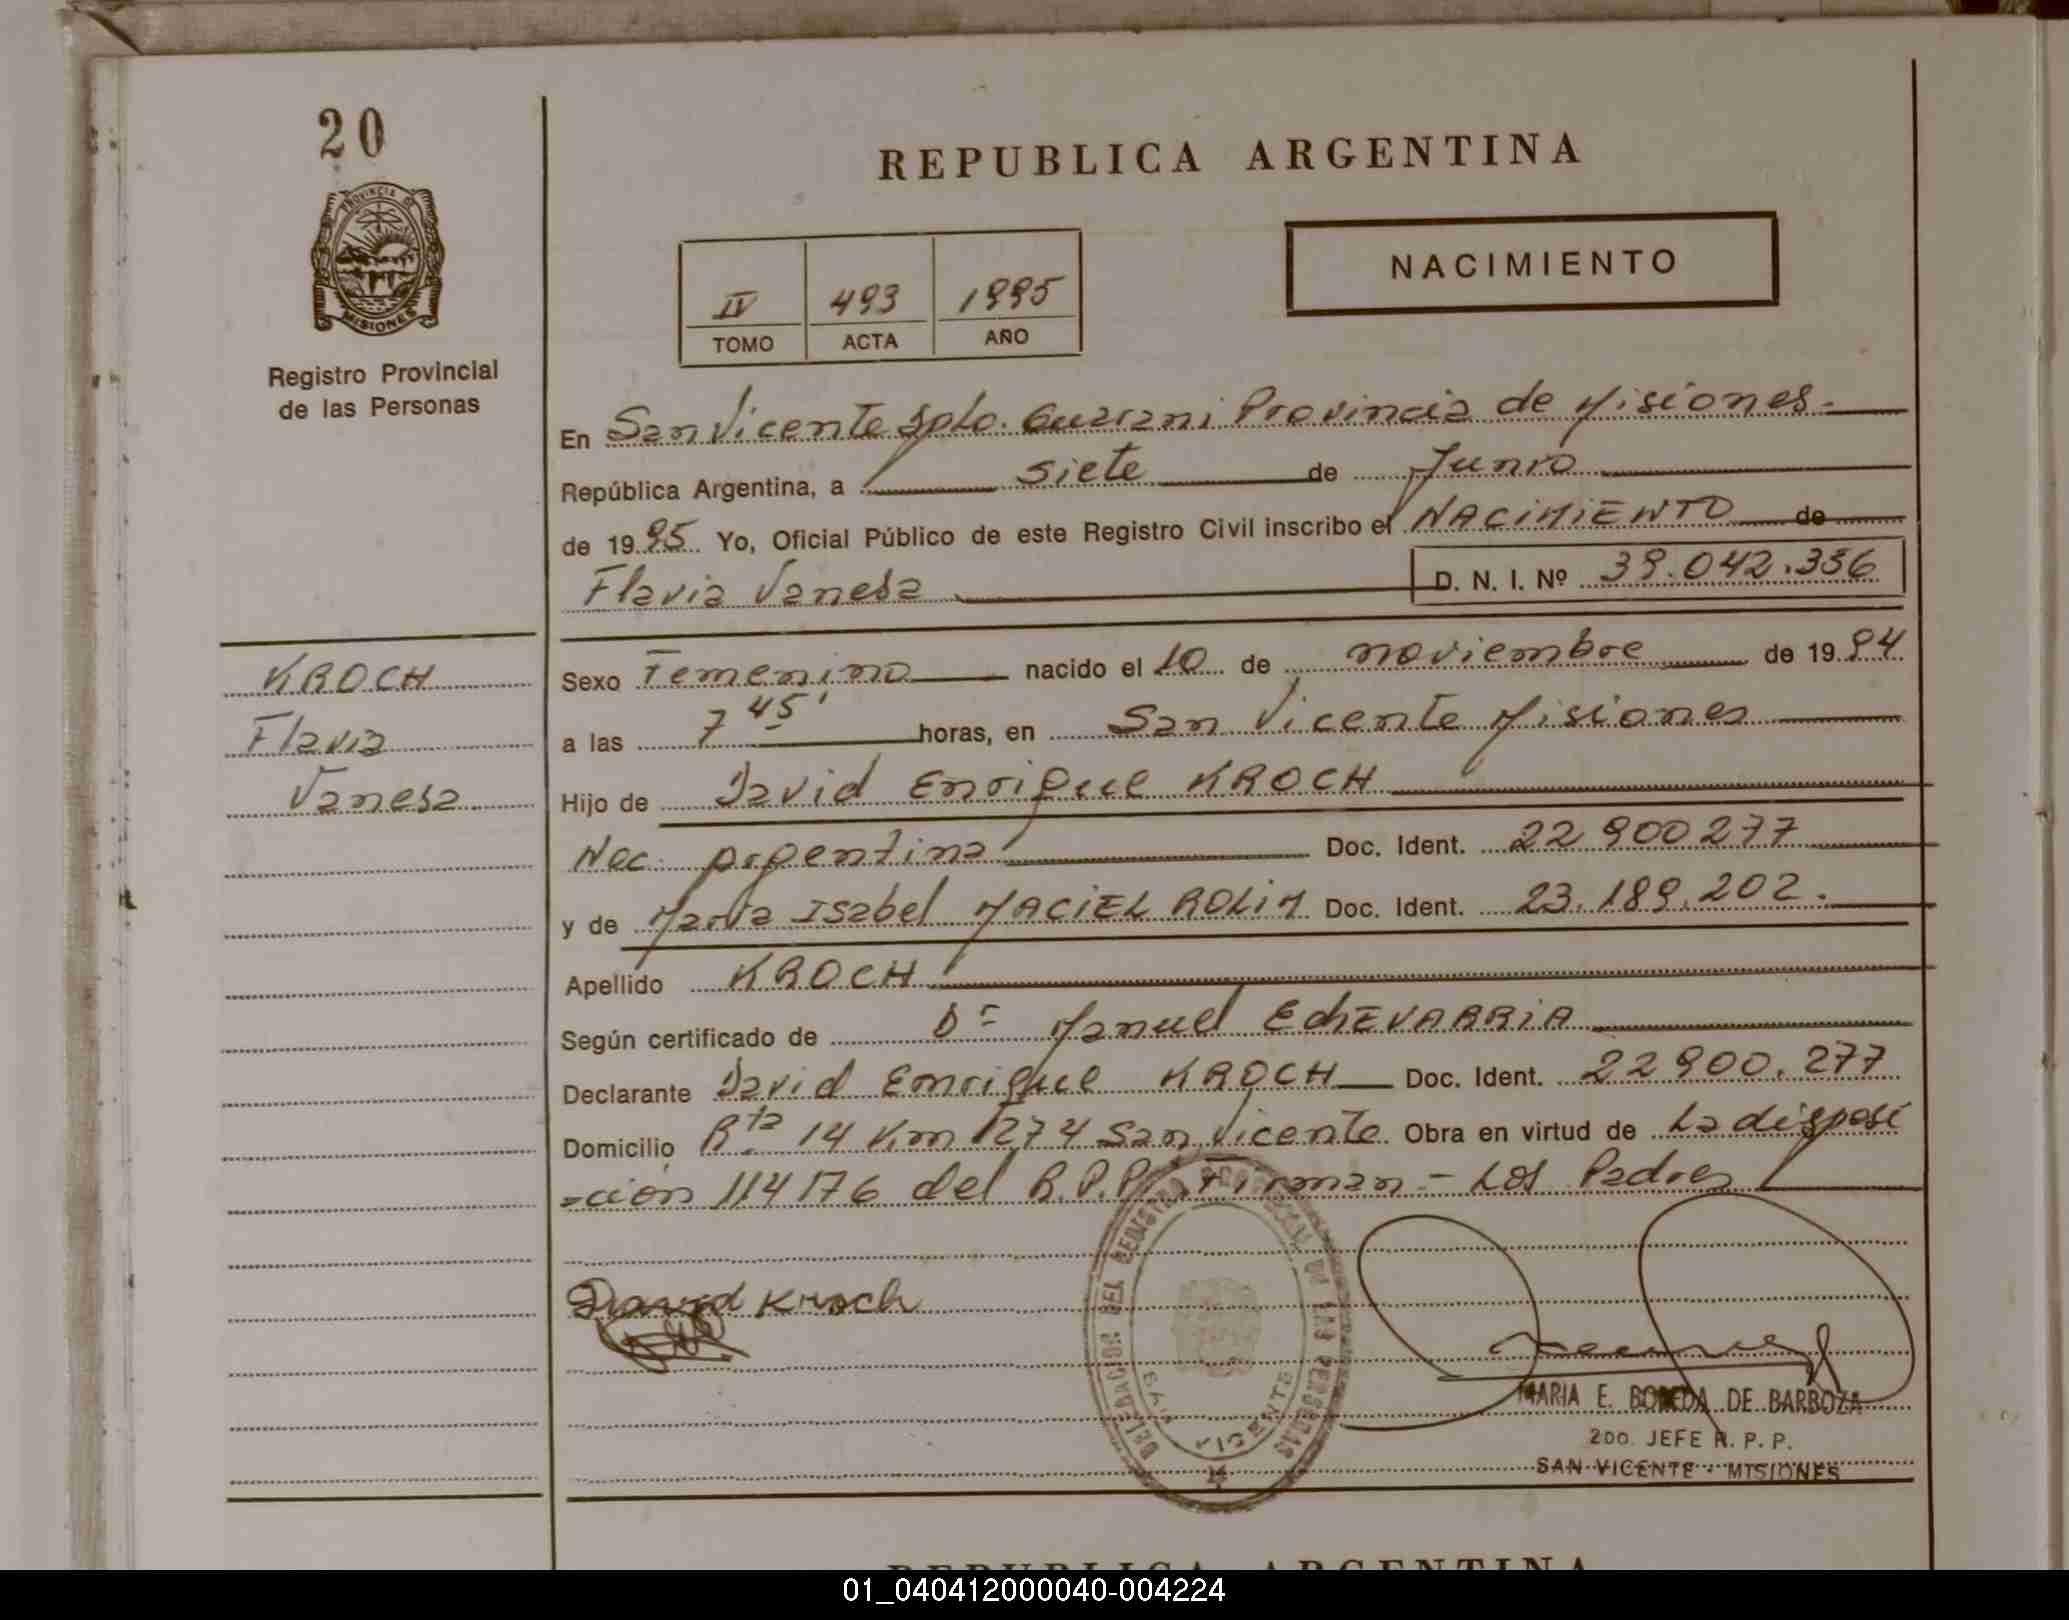 20
PROVINCIA DE
MISIONES
Registro Provincial
de las Personas
REPUBLICA ARGENTINA
NACIMIENTO
IV 493 1995
TOMO ACTA AÑO
En San Vicente Dpto. Guarani Provincia de Misiones.
República Argentina, a siete de Junio
de 1995 Yo, Oficial Público de este Registro Civil inscribo el NACIMIENTO de
Flavia Vanesa D. N. I. Nº 39.042.336
KROCH
Flavia
Vanesa
Sexo Femenino nacido el 10 de noviembre de 1994
a las 7 45' horas, en San Vicente Misiones
Hijo de David Enrique KROCH
Nac. Argentina Doc. Ident. 22 900 277
y de Maria Isabel MACIEL ROLIM Doc. Ident. 23.189.202.
Apellido KROCH
Según certificado de Dr Manuel EchEVARRIA
Declarante David Enrique KROCH Doc. Ident. 22 900.277
Domicilio Rta 14 Km 1274 San Vicente. Obra en virtud de La disposi
-ción 114176 del R.P.P. Firman - Los Padres
David Kroch
DELEGACION DEL REGISTRO PROVINCIAL DE LAS PERSONAS
SAN VICENTE
MARIA E. BOVEDA DE BARBOZA
2DO. JEFE R. P. P.
SAN VICENTE - MISIONES
REPUBLICA ARGENTINA
01_040412000040-004224